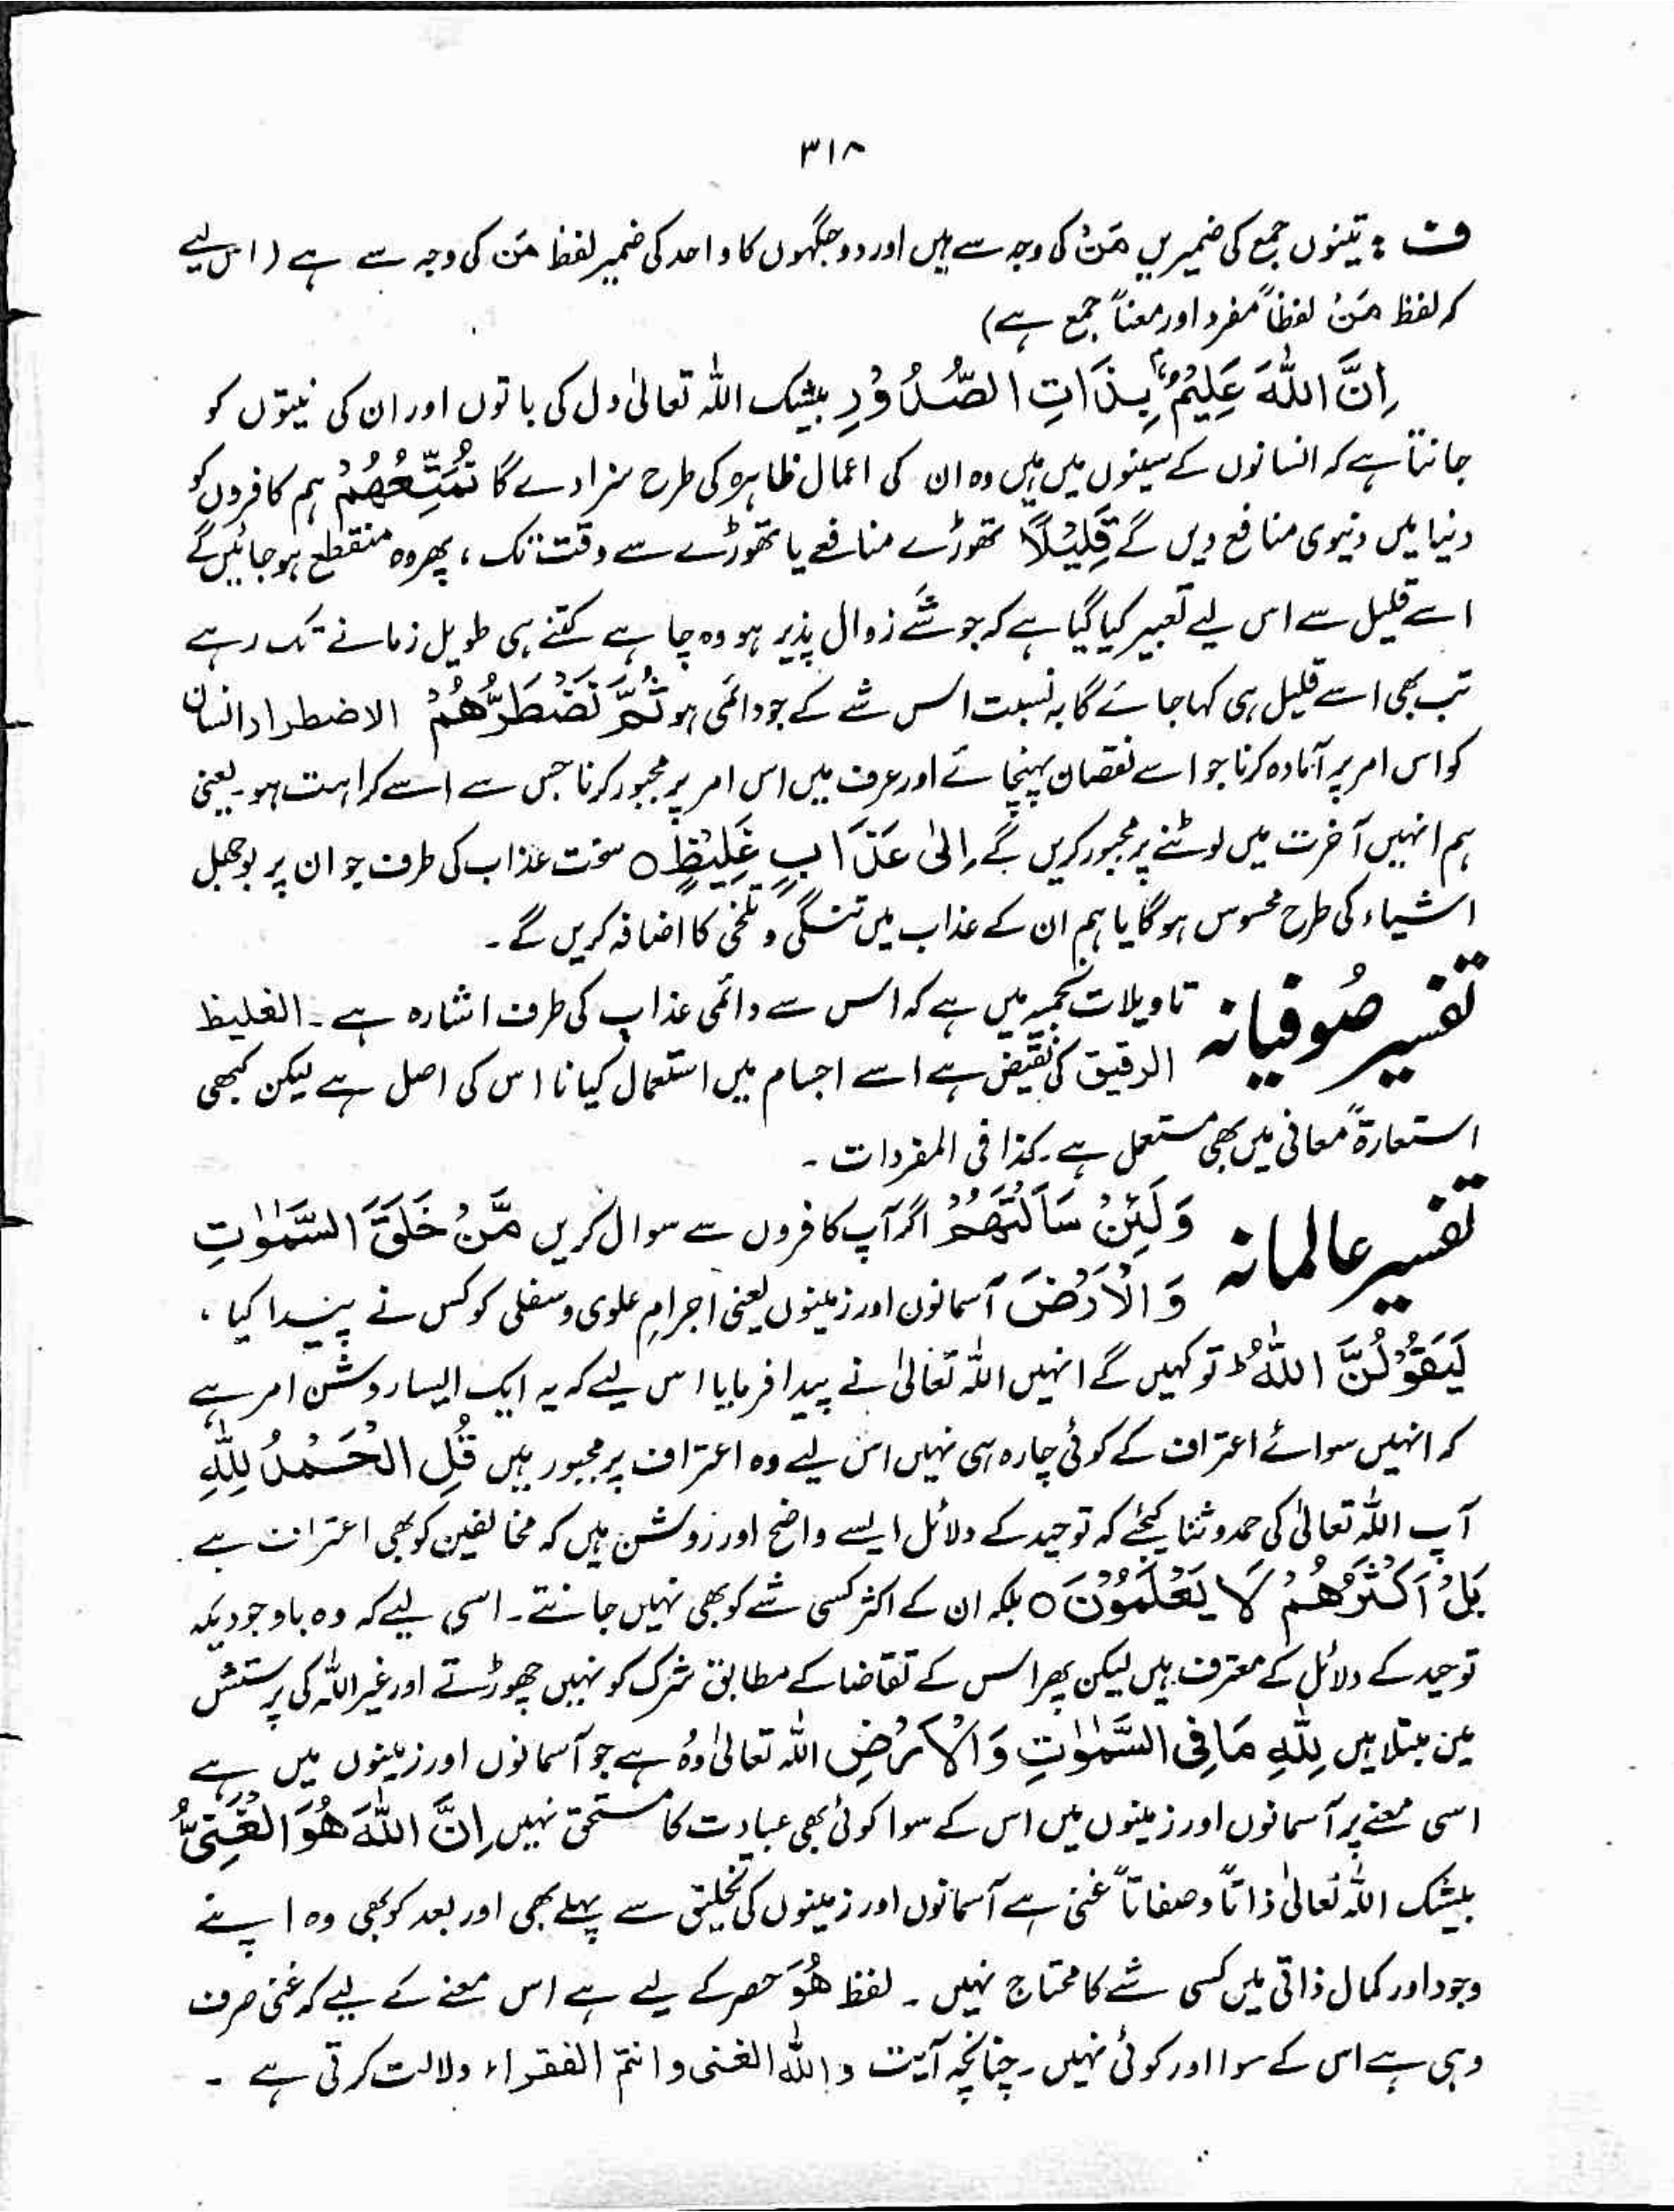 ۳۱۸
ف : تینوں جمع کی ضمیریں مَنْ کی وجہ سے ہیں اور دو جگہوں کا واحد کی ضمیر لفظ مَن کی وجہ سے ہے ( اس لیے
کہ لفظ مَنْ لفظاً مفرد اور معناً جمع ہے)
اِنَّ اللّٰہَ عَلِیْمٌۢ بِذَاتِ الصُّدُوْرِ بیشک اللہ تعالیٰ دل کی باتوں اور ان کی نیتوں کو
جانتا ہے کہ انسانوں کے سینوں میں ہیں وہ ان کی اعمال ظاہرہ کی طرح سزا دے گا نُمَتِّعُھُمْ ہم کافروں کو
دنیا میں دنیوی منافع دیں گے قَلِیْلًا تھوڑے منافع یا تھوڑے سے وقت تک ، پھر وہ منقطع ہو جائیں گے
اسے قلیل سے اس لیے تعبیر کیا گیا ہے کہ جو شَے زوال پذیر ہو وہ چاہے کتنے ہی طویل زمانے تک رہے
تب بھی اسے قلیل ہی کہا جائے گا بہ نسبت اس شے کے جو دائمی ہو ثُمَّ نَضْطَرُّھُمْ الاضطرار انسان
کو اس امر پر آمادہ کرنا جو اسے نقصان پہنچائے اور عرف میں اس امر پر مجبور کرنا جس سے اسے کراہت ہو۔ یعنی
ہم انہیں آخرت میں لوٹنے پر مجبور کریں گے اِلیٰ عَذَابٍ غَلِیْظٍ ○ سخت عذاب کی طرف جو ان پر بوجھل
اشیاء کی طرح محسوس ہوگا یا ہم ان کے عذاب میں تنگی و تلخی کا اضافہ کریں گے ۔
تفسیر صُوفیانہ تاویلات نجمیہ میں ہے کہ اس سے دائمی عذاب کی طرف اشارہ ہے ۔ الغلیظ
الرقیق کی نقیض ہے اسے اجسام میں استعمال کیا نا اس کی اصل ہے لیکن کبھی
استعارۃً معانی میں بھی مستعمل ہے ۔ کذا فی المفردات ۔
تفسیر عالمانہ وَلَئِنْ سَاَلْتَھُمْ اگر آپ کافروں سے سوال کریں مَّنْ خَلَقَ السَّمٰوٰتِ
وَ الْاَرْضَ آسمانوں اور زمینوں یعنی اجرامِ علوی و سفلی کو کس نے پیدا کیا ،
لَیَقُوْلُنَّ اللّٰہُ ط تو کہیں گے انہیں اللہ تعالیٰ نے پیدا فرمایا اس لیے کہ یہ ایک ایسا روشن امر ہے
کہ انہیں سوائے اعتراف کے کوئی چارہ ہی نہیں اس لیے وہ اعتراف پر مجبور ہیں قُلِ الْحَمْدُ لِلّٰہِ
آپ اللہ تعالیٰ کی حمد و ثنا کیجئے کہ توحید کے دلائل ایسے واضح اور روشن ہیں کہ مخالفین کو بھی اعتراف ہے
بَلْ اَکْثَرُھُمْ لَا یَعْلَمُوْنَ ○ بلکہ ان کے اکثر کسی شے کو بھی نہیں جانتے ۔ اسی لیے کہ وہ باوجودیکہ
توحید کے دلائل کے معترف ہیں لیکن پھر اس کے تقاضا کے مطابق شرک کو نہیں چھوڑتے اور غیر اللہ کی پرستش
میں مبتلا ہیں لِلّٰہِ مَا فِی السَّمٰوٰتِ وَ الْاَرْضِ اللہ تعالیٰ وہُ ہے جو آسمانوں اور زمینوں میں ہے
اسی معنے پر آسمانوں اور زمینوں میں اس کے سوا کوئی بھی عبادت کا مستحق نہیں اِنَّ اللّٰہَ ھُوَ الْغَنِیُّ
بیشک اللہ تعالیٰ ذاتاً و صفاتاً غنی ہے آسمانوں اور زمینوں کی تخلیق سے پہلے بھی اور بعد کو بھی وہ اپنے
وجود اور کمال ذاتی میں کسی شے کا محتاج نہیں ۔ لفظ ھُوَ حصر کے لیے ہے اس معنے کے لیے کہ غنی صرف
وہی ہے اس کے سوا اور کوئی نہیں ۔ چنانچہ آیت و اللہ الغنی و انتم الفقراء دلالت کرتی ہے ۔